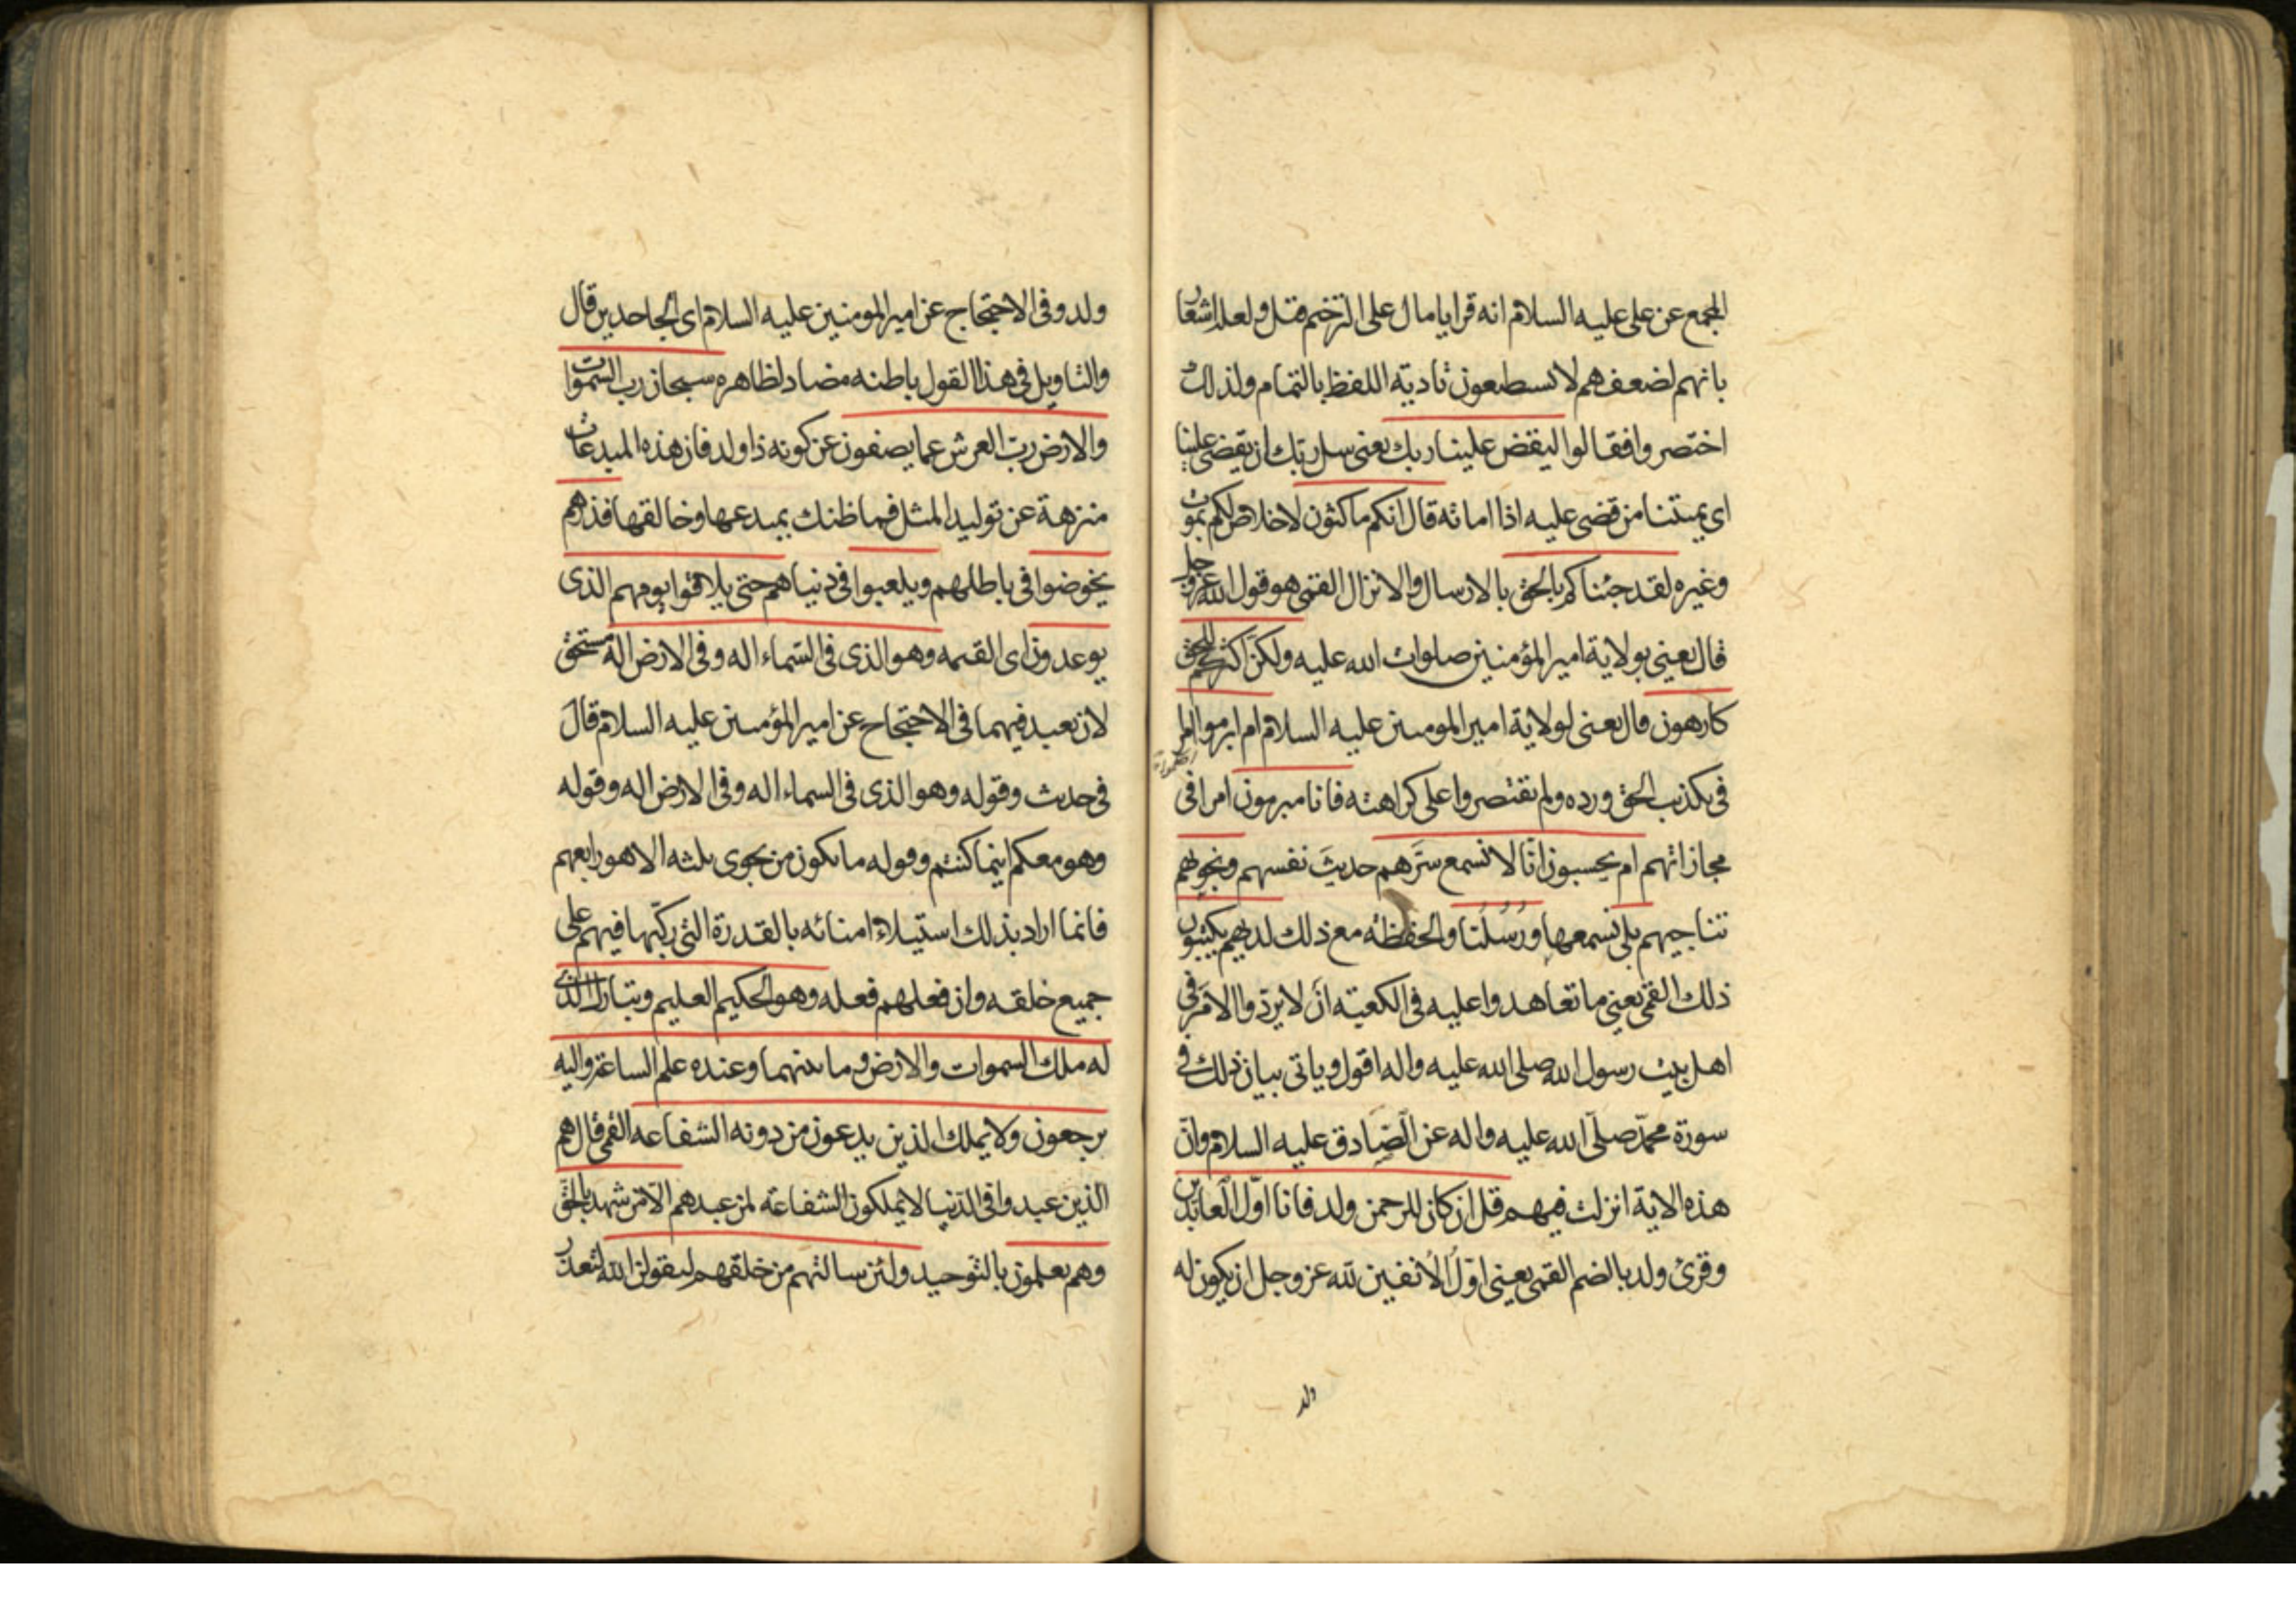 المجمع عن علی علیه السلام انه قرا یا مال علی الترخیم قیل ولعله اشعار
بانهم لضعفهم لا یسطیعون تادیة اللفظ بالتمام ولذلك
اختصروا فقالوا لیقض علینا ربك یعنی سل ربك ان یقضی علینا
ای یمیتنا من قضی علیه اذا اماته قال انكم ماكثون لاخلاص لكم بموت
وغیره لقد جئناكم بالحق بالارسال والانزال القمی هو قول الله عز وجل
قال یعنی بولایة امیر المؤمنین صلوات الله علیه ولكن اكثركم للحق
كارهون قال یعنی لولایة امیر المومنین علیه السلام ام ابرموا امرا
فی تكذیب الحق ورده ولم یقتصروا علی كراهته فانا مبرمون امرا فی
مجازاتهم ام یحسبون انا لا نسمع سرهم حدیث نفسهم ونجویهم
تناجیهم بلی نسمعها ورسلنا والحفظة مع ذلك لدیهم یكتبون
ذلك القمی یعنی ما تعاهدوا علیه فی الكعبة ان لا یردوا الامر فی
اهل بیت رسول الله صلی الله علیه واله اقول ویاتی بیان ذلك فی
سورة محمد صلی الله علیه واله عن الصادق علیه السلام وان
هذه الایة انزلت فیهم قل ان كان للرحمن ولد فانا اول العابدین
وقرئ ولد بالضم القمی یعنی اول الآنفین لله عز وجل ان یكون له
ولد
ولد وفی الاحتجاج عن امیر المومنین علیه السلام ای الجاحدین قال
والتاویل فی هذا القول باطنه مضاد لظاهره سبحان رب السموات
والارض رب العرش عما یصفون عن كونه ذا ولد فان هذه المبدعات
منزهة عن تولید المثل فما ظنك بمبدعها وخالقها فذرهم
یخوضوا فی باطلهم ویلعبوا فی دنیاهم حتی یلاقوا یومهم الذی
یوعدون ای القیمه وهو الذی فی السماء اله وفی الارض اله مستحق
لان یعبد فیهما فی الاحتجاج عن امیر المؤمنین علیه السلام قال
فی حدیث وقوله وهو الذی فی السماء اله وفی الارض اله وقوله
وهو معكم اینما كنتم وقوله ما یكون من نجوی ثلثه الا هو رابعهم
فانما اراد بذلك استیلاء امنائه بالقدرة التی ركبها فیهم علی
جمیع خلقه وان فعلهم فعله وهو الحكیم العلیم وتبارك الذی
له ملك السموات والارض وما بینهما وعنده علم الساعة والیه
یرجعون ولا یملك الذین یدعون من دونه الشفاعه القمی قال هم
الذین عبدوا فی الدنیا لا یملكون الشفاعة لمن عبدهم الا من شهد بالحق
وهم یعلمون بالتوحید ولئن سالتهم من خلقهم لیقولن الله لتعذر